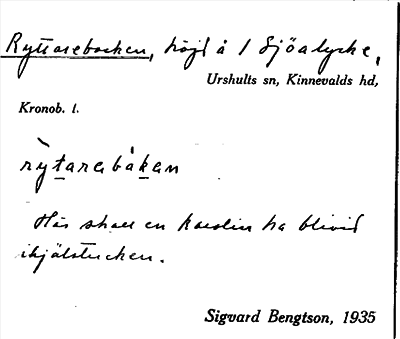 Ryttarebacken, höjd å 1 Sjöalycke,
Urshults sn, Kinnevalds hd,
Kronob. l.
rỳtarabåkan
Här skall en karolin ha blivit
ihjälstucken.
Sigvard Bengtson, 1935